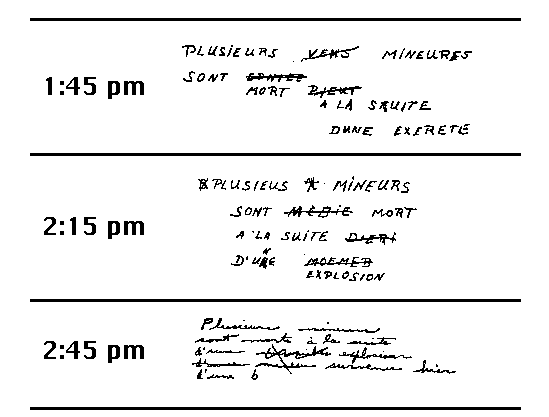 1:45 pm
PLUSIEURS VERS MINEURES
SONT
MORT
A LA SRUITE
DUNE EXERETE
2:15 pm
PLUSIEUS MINEURS
SONT MORT
A LA SUITE
D'UNE
EXPLOSION
2:45 pm
Plusieurs mineurs
sont morts à la suite
d'une explosion
survenue hier
d'une b